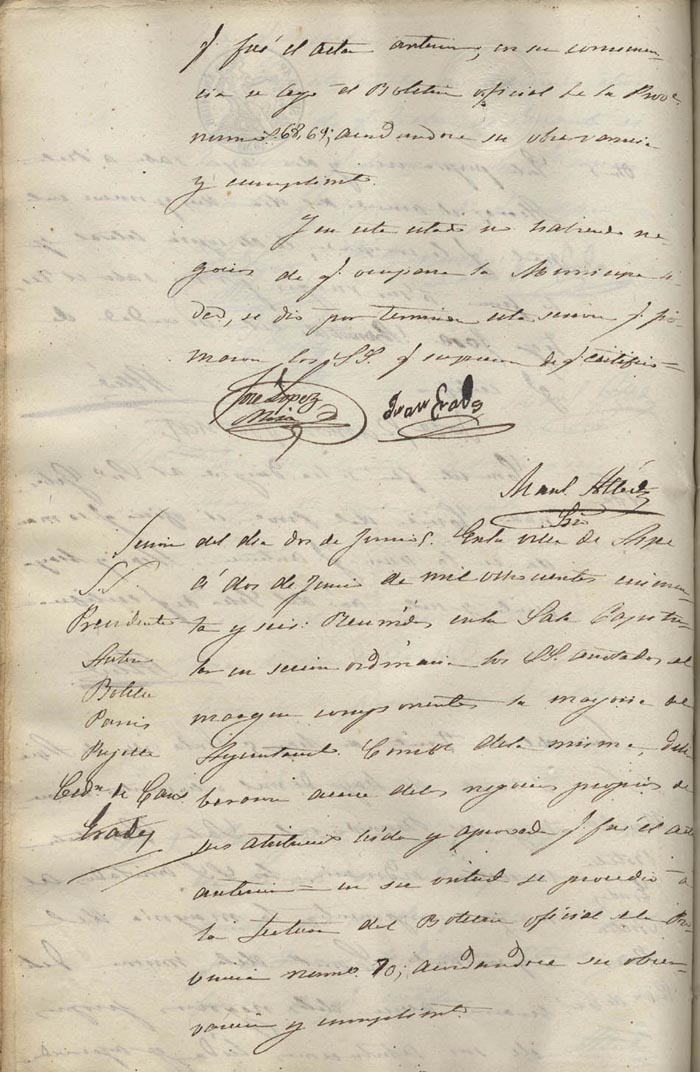 q.e fué el acta anterior, en su consecuen
cia se leyó el Boletin oficial de la Prov.a
num.s 68, 69; acordandose su observancia
y cumplim.to
Y en este estado no habiendo ne
gocios de q.e ocuparse la Municipali
dad, se dió por terminada esta sesion q.e fir
maron los SS. q.e supieron de q.e certifico=
José Lopez
Juan Erades
Man.l
Srio
Sesion del dia dos de Junio. En la villa de
á dos de Junio de mil ochocientos cincuen
ta y seis: Reunidos en la Sala Capitu
lar en sesion ordinaria los SS. anotados al
margen componentes la mayoria del
Ayuntamt.o Constl. de la misma, deli
beraron acerca de los negocios propios de
sus atribuc.s leida y aprovada q.e fué el acta
anterior= en su virtud se procedió a
la lectura del Boletin oficial de la Pro
vincia num.o 70; acordandose su obser
vancia y cumplim.to
SS.
Presidente
Botella
Parris
Erades